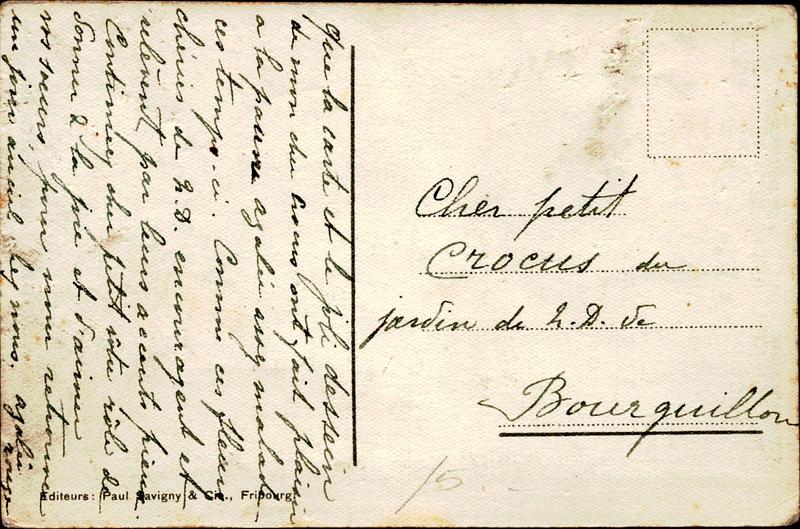 Que la carte et le joli dessein
de mon cher Crocus ont fait plaisir
à la pauvre azalée assez malade
ces temps-ci. Comme ces fleurs
chéries de N.D. encouragent et
relèvent par leurs accents pieux.
Continuez cher petit votre rôle de
donner de la joie et d'aimer
vos soeurs, pour nous retrouver
un jour au ciel. Bg nous. azalée
rouge
Cher petit
Crocus du
jardin de N.D. de
Bourguillon
15
Editeurs: Paul Savigny & Cie., Fribourg